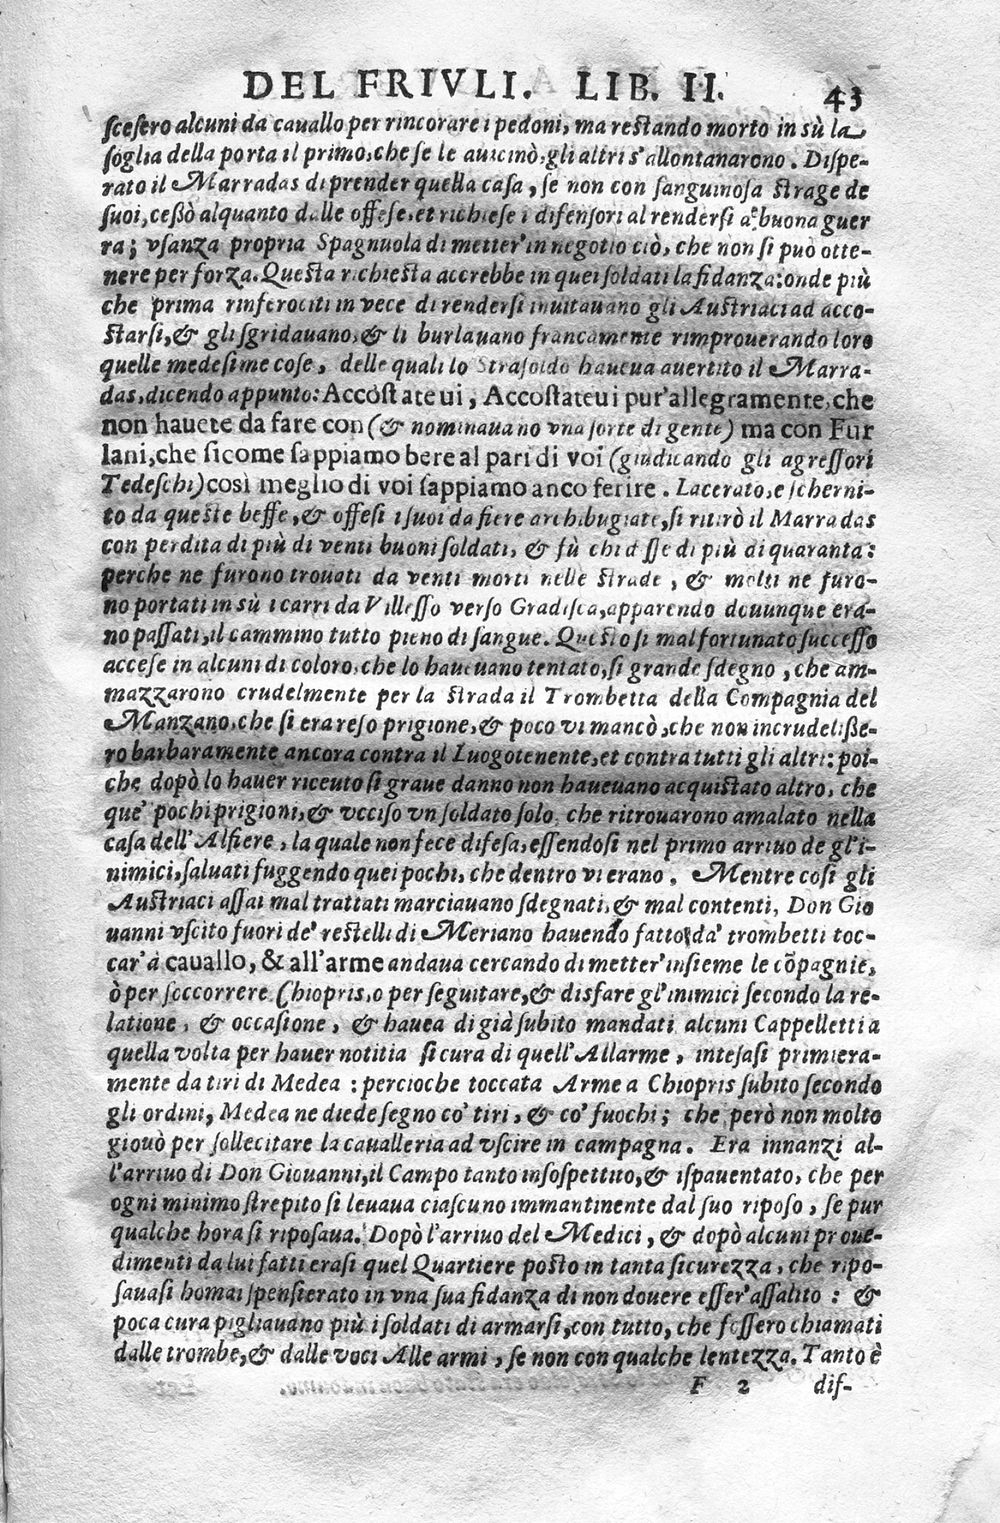 DEL FRIVLI. LIB. II. 43
ſceſero alcuni da cauallo per rincorare i pedoni, ma reſtando morto in sù la
ſoglia della porta il primo, che ſe le auicinò, gli altri s'allontanarono. Diſpe-
rato il Marradas di prender quella caſa, ſe non con ſanguinoſa ſtrage de
ſuoi, ceßò alquanto dalle offeſe, et richieſe i difenſori al renderſi a buona guer
ra; vſanza propria Spagnuola di metter' in negotio ciò, che non ſi può otte-
nere per forza. Queſta richieſta accrebbe in quei ſoldati la fidanza: onde più
che prima rinferociti in vece di renderſi inuitauano gli Auſtriaci ad acco-
ſtarſi, & gli ſgridauano, & li burlauano francamente rimprouerando loro
quelle medeſime coſe, delle quali lo Straſoldo haueua auertito il Marra-
das, dicendo appunto: Accoſtateui, Accoſtateui pur'allegramente, che
non hauete da fare con (& nominauano vna ſorte di gente) ma con Fur
lani, che ſicome ſappiamo bere al pari di voi (giudicando gli agreſſori
Tedeſchi) così meglio di voi ſappiamo anco ferire. Lacerato, e ſcherni-
to da queſte beffe, & offeſi i ſuoi da fiere archibugiate, ſi ritirò il Marradas
con perdita di più di venti buoni ſoldati, & fù chi diſſe di più di quaranta:
perche ne furono trouati da venti morti nelle ſtrade, & molti ne furo-
no portati in sù i carri da Villeſſo verſo Gradiſca, apparendo douunque era-
no paſſati, il cammino tutto pieno di ſangue. Queſto ſi mal fortunato ſucceſſo
acceſe in alcuni di coloro, che lo haueuano tentato, ſi grande ſdegno, che am-
mazzarono crudelmente per la ſtrada il Trombetta della Compagnia del
Manzano, che ſi era reſo prigione, & poco vi mancò, che non incrudelißE-
ro barbaramente ancora contra il Luogotenente, et contra tutti gli altri: poi-
che dopò lo hauer riceuto ſi graue danno non haueuano acquiſtato altro, che
que' pochi prigioni, & vcciſo vn ſoldato ſolo, che ritrouarono amalato nella
caſa dell' Alfiere, la quale non fece difeſa, eſſendoſi nel primo arriuo de gl'i-
nimici, ſaluati fuggendo quei pochi, che dentro vi erano. Mentre coſi gli
Auſtriaci aſſai mal trattati marciauano ſdegnati, & mal contenti, Don Gio
uanni vſcito fuori de' reſtelli di Meriano hauendo fatto da' trombetti toc-
car'à cauallo, & all'arme andaua cercando di metter' inſieme le cõpagnie,
ò per ſoccorrere Chiopris, o per ſeguitare, & disfare gl'inimici ſecondo la re-
latione, & occaſione, & hauea di già ſubito mandati alcuni Cappelletti a
quella volta per hauer notitia ſicura di quell' Allarme, inteſaſi primiera-
mente da tiri di Medea: percioche toccata Arme a Chiopris ſubito ſecondo
gli ordini, Medea ne diede ſegno co' tiri, & co' fuochi; che però non molto
giouò per ſollecitare la caualleria ad vſcire in campagna. Era innanzi al-
l'arriuo di Don Giouanni, il Campo tanto inſoſpettito, & iſpauentato, che per
ogni minimo ſtrepito ſi leuaua ciaſcuno immantinente dal ſuo ripoſo, ſe pur
qualche hora ſi ripoſaua. Dopò l'arriuo del Medici, & dopò alcuni proue-
dimenti da lui fatti eraſi quel Quartiere poſto in tanta ſicurezza, che ripo-
ſauaſi homai ſpenſierato in vna ſua fidanza di non douere eſſer'aſſalito: &
poca cura pigliauano più i ſoldati di armarſi, con tutto, che foſſero chiamati
dalle trombe, & dalle voci Alle armi, ſe non con qualche lentezza. Tanto è
F 2 diſ-